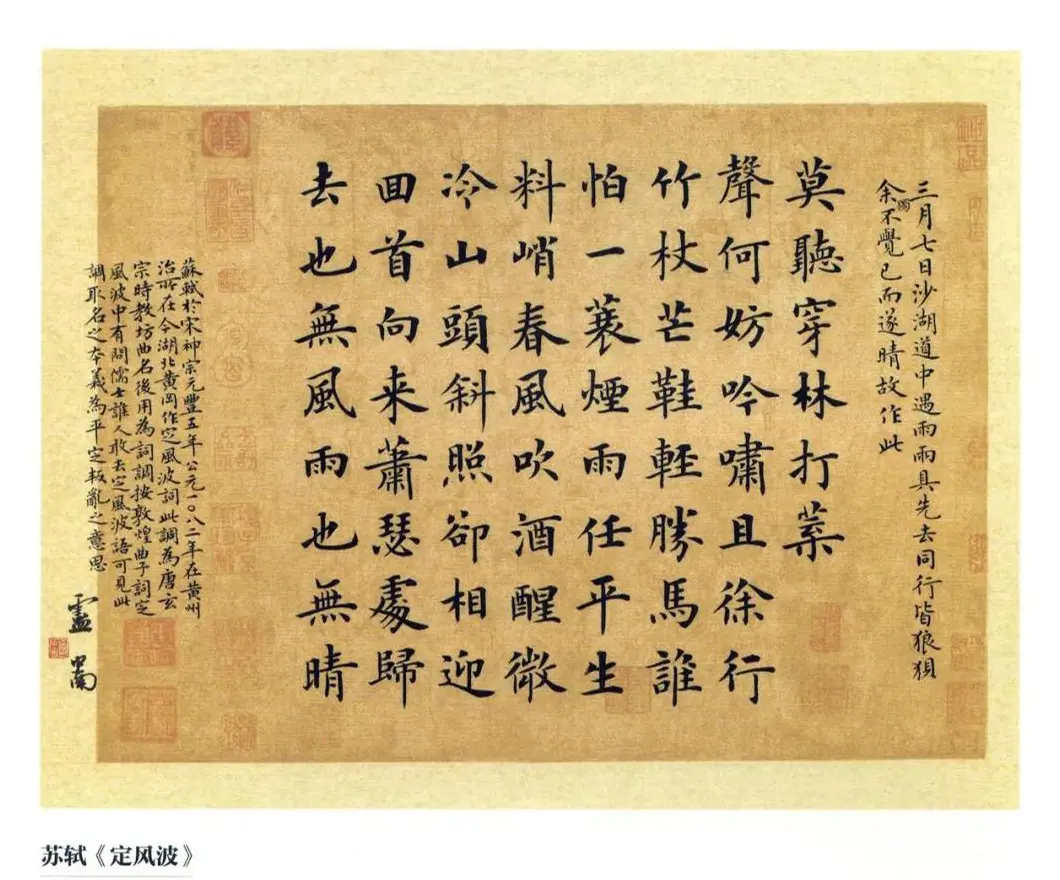 三月七日沙湖道中遇雨雨具先去同行皆狼狽
余獨不覺已而遂晴故作此
莫聽穿林打葉
聲何妨吟嘯且徐行
竹杖芒鞋輕勝馬誰
怕一蓑煙雨任平生
料峭春風吹酒醒微
冷山頭斜照卻相迎
回首向来蕭瑟處歸
去也無風雨也無晴
蘇軾於宋神宗元豐五年公元一〇八二年在黄州
治所在今湖北黄岡作定風波詞此調為唐玄
宗時教坊曲名後用為詞調按敦煌曲子詞定
風波中有問儒士誰人敢去定風波語可見此
調取名之本義為平定叛亂之意思
苏轼《定风波》